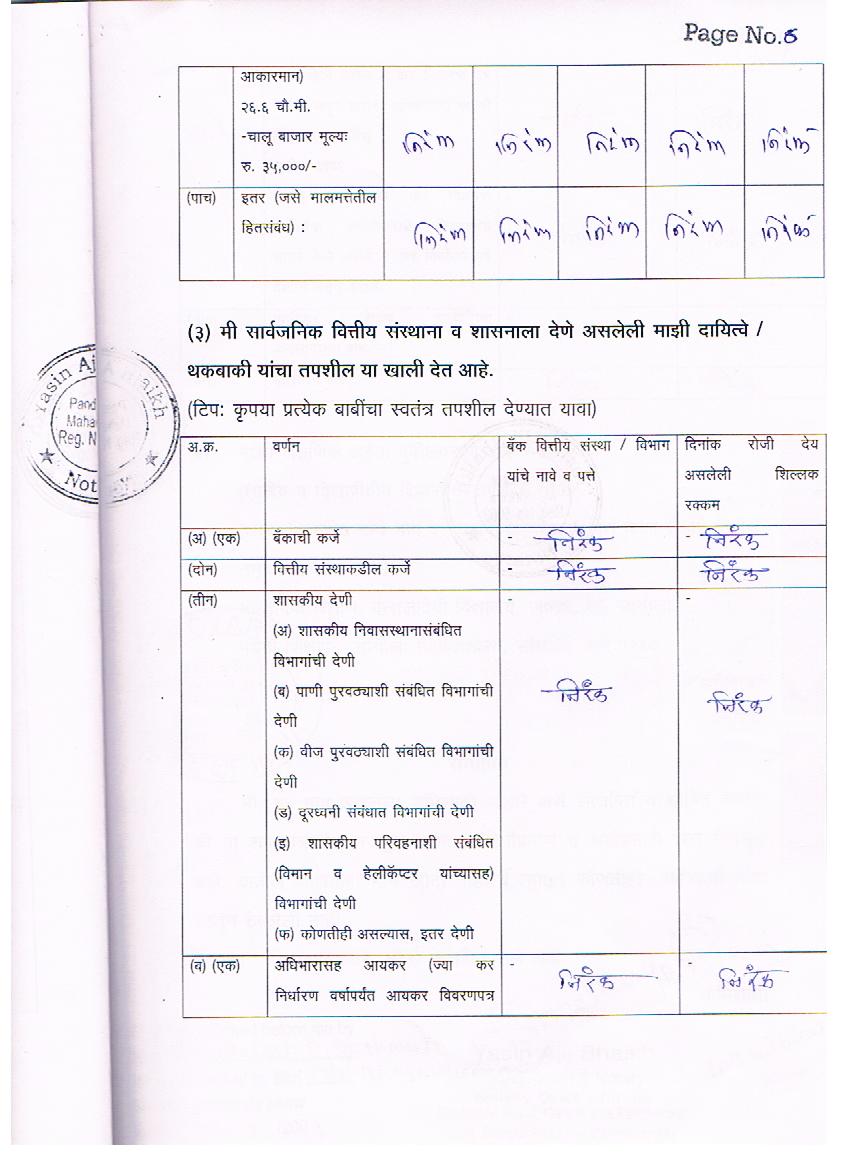 Page No.5
आकारमान)
२६.६ चौ.मी.
-चालू बाजार मूल्यः
रु. ३५,०००/-
निरंक निरंक निरंक निरंक निरंक
(पाच) इतर (जसे मालमत्तेतील
हितसंबंध) :
निरंक निरंक निरंक निरंक निरंक
(३) मी सार्वजनिक वित्तीय संस्थाना व शासनाला देणे असलेली माझी दायित्वे /
थकबाकी यांचा तपशील या खाली देत आहे.
(टिप: कृपया प्रत्येक बाबींचा स्वतंत्र तपशील देण्यात यावा)
अ.क्र. वर्णन बँक वित्तीय संस्था / विभाग दिनांक रोजी देय
यांचे नावे व पत्ते असलेली शिल्लक
रक्कम
(अ) (एक) बँकाची कर्जे - निरंक - निरंक
(दोन) वित्तीय संस्थाकडील कर्जे - निरंक - निरंक
(तीन) शासकीय देणी - -
(अ) शासकीय निवासस्थानासंबंधित
विभागांची देणी
(ब) पाणी पुरवठ्याशी संबंधित विभागांची निरंक निरंक
देणी
(क) वीज पुरवठ्याशी संबंधित विभागांची
देणी
(ड) दूरध्वनी संबंधात विभागांची देणी
(इ) शासकीय परिवहनाशी संबंधित
(विमान व हेलीकॅप्टर यांच्यासह)
विभागांची देणी
(फ) कोणतीही असल्यास, इतर देणी
(ब) (एक) अधिभारासह आयकर (ज्या कर - निरंक - निरंक
निर्धारण वर्षापर्यंत आयकर विवरणपत्र
Yasin
Reg. N
Not